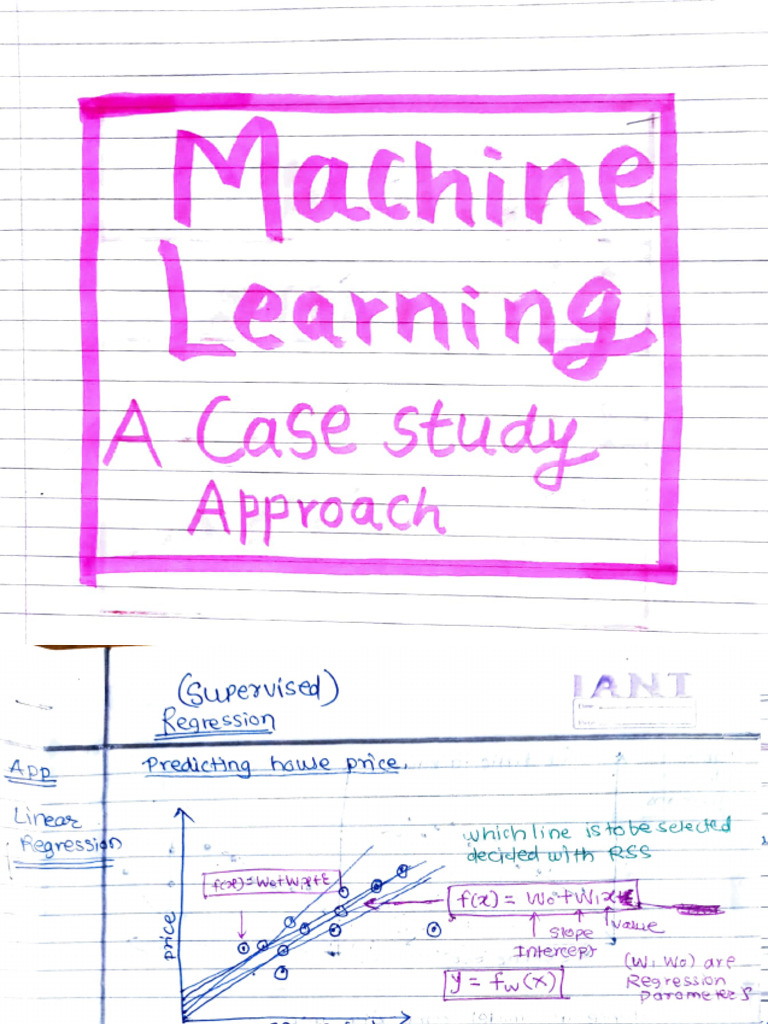 Machine
Learning
A Case study
Approach
(Supervised)
Regression
IANT
App
Predicting house price.
Linear
Regression
which line is to be selected
decided with RSS
f(x) = W0+W1x+ε
f(x) = W0+W1x
value
slope
Intercept
price
(W1 W0) are
Regression
parameters
y = fw(x)